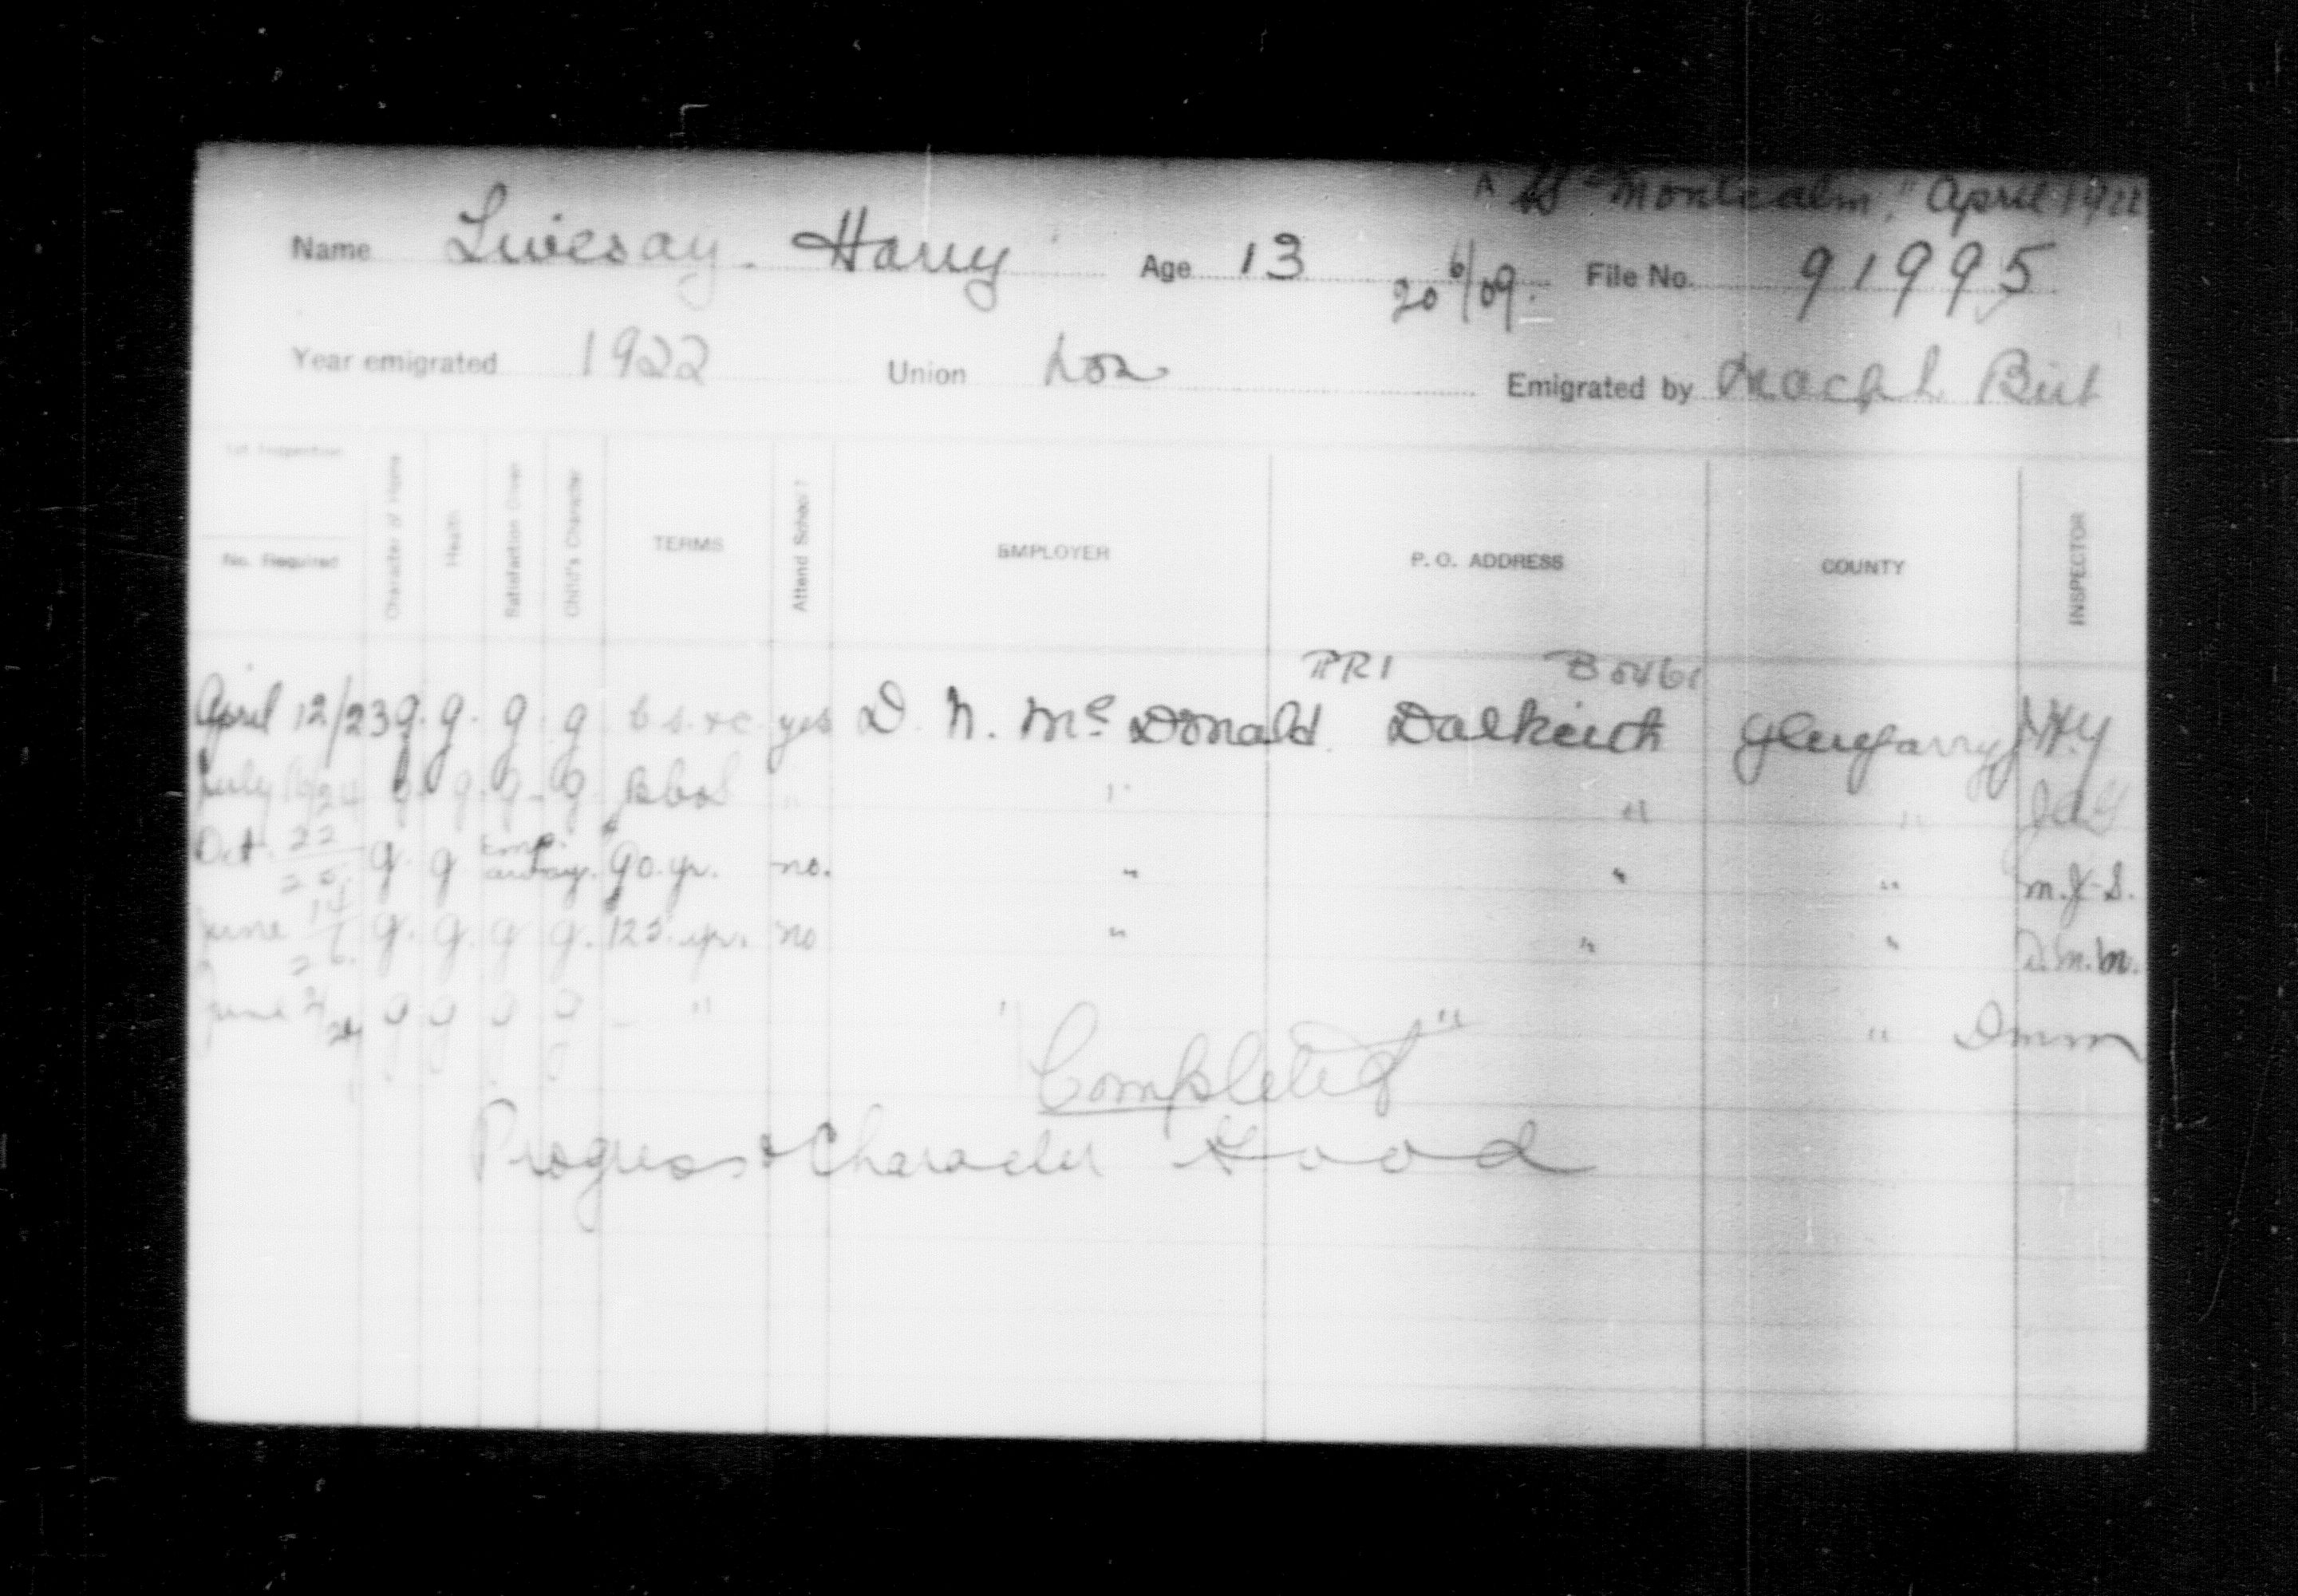 SS "Montcalm," April 1922
Name Livesay Harry Age 13 20/6/09. File No. 91995
Year emigrated 1922 Union Lon Emigrated by Macph. Birt
1st Inspection
No. Required Character of Home Health Satisfaction Given Child's Character TERMS Attend School? EMPLOYER P. O. ADDRESS COUNTY INSPECTOR
RR1
April 12/23 g. g. g g yes D. N. Mc Donald. Dalkeith Glengarry
July g. g. g. g. " " " "
Oct. 22 25. g. g away. $90. yr. no. " " " M.J.S.
June 14 26. g. g. g g. $125. yr. no " " " D.M.M.
June g g g g " " " Dmm
"Completed"
Progress & Character Good